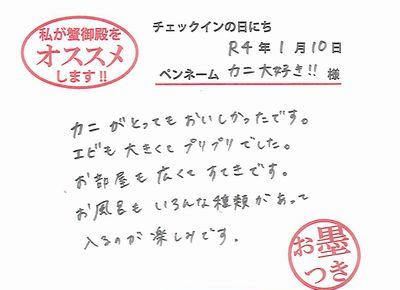 私が蟹御殿を
オススメ
します!!
チェックインの日にち
R4年1月10日
ペンネーム カニ大好き!! 様
カニがとってもおいしかったです。
エビも大きくてプリプリでした。
お部屋も広くてすてきです。
お風呂もいろんな種類があって
入るのが楽しみです。
お墨
つき